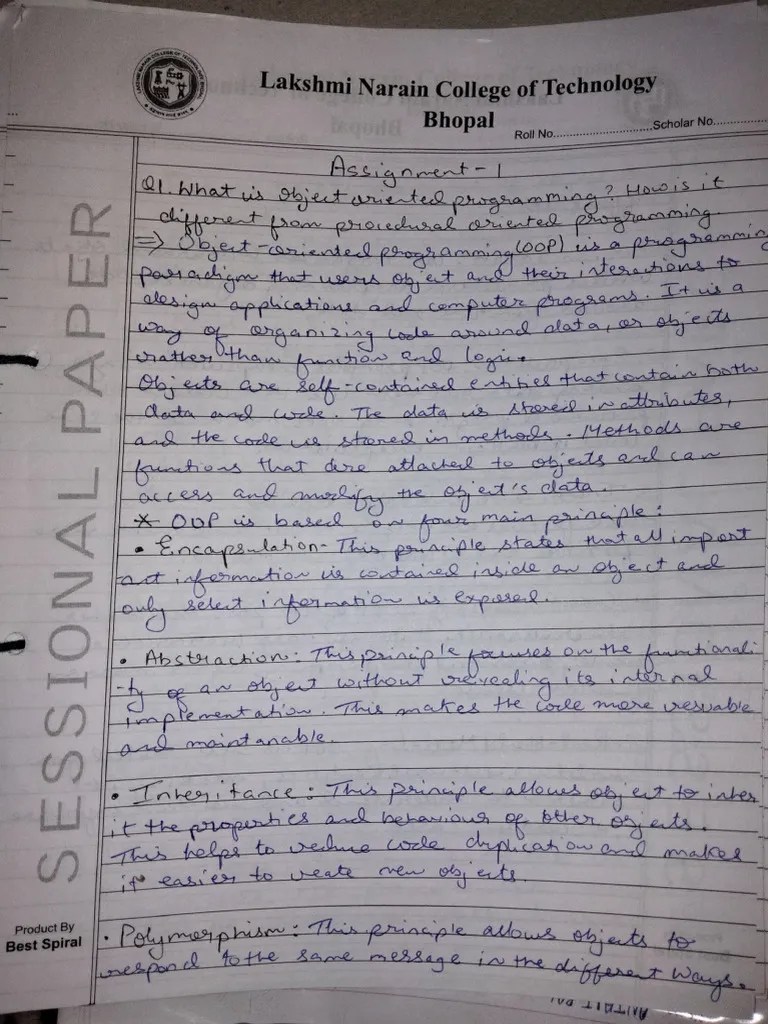 Lakshmi Narain College of Technology
Bhopal
Roll No. Scholar No.
Assignment - 1
Q1. What is object oriented programming? How is it
different from procedural oriented programming.
⇒ Object-oriented programming (OOP) is a programming
paradigm that users object and their interactions to
design applications and computer programs. It is a
way of organizing code around data, or objects
rather than function and logic.
Objects are self-contained entities that contain both
data and code. The data is stored in attributes,
and the code is stored in methods. Methods are
functions that are attached to objects and can
access and modify the object's data.
* OOP is based on four main principle:
• Encapsulation- This principle states that all import
ant information is contained inside an object and
only select information is exposed.
• Abstraction: This principle focuses on the functionali
-ty of an object without revealing its internal
implementation. This makes the code more reusable
and maintanable.
• Inheritance: This principle allows object to inher
it the properties and behaviour of other objects.
This helps to reduce code duplication and makes
it easier to create new objects.
• Polymorphism: This principle allows objects to
respond to the same message in the different ways.
SESSIONAL PAPER
Product By
Best Spiral